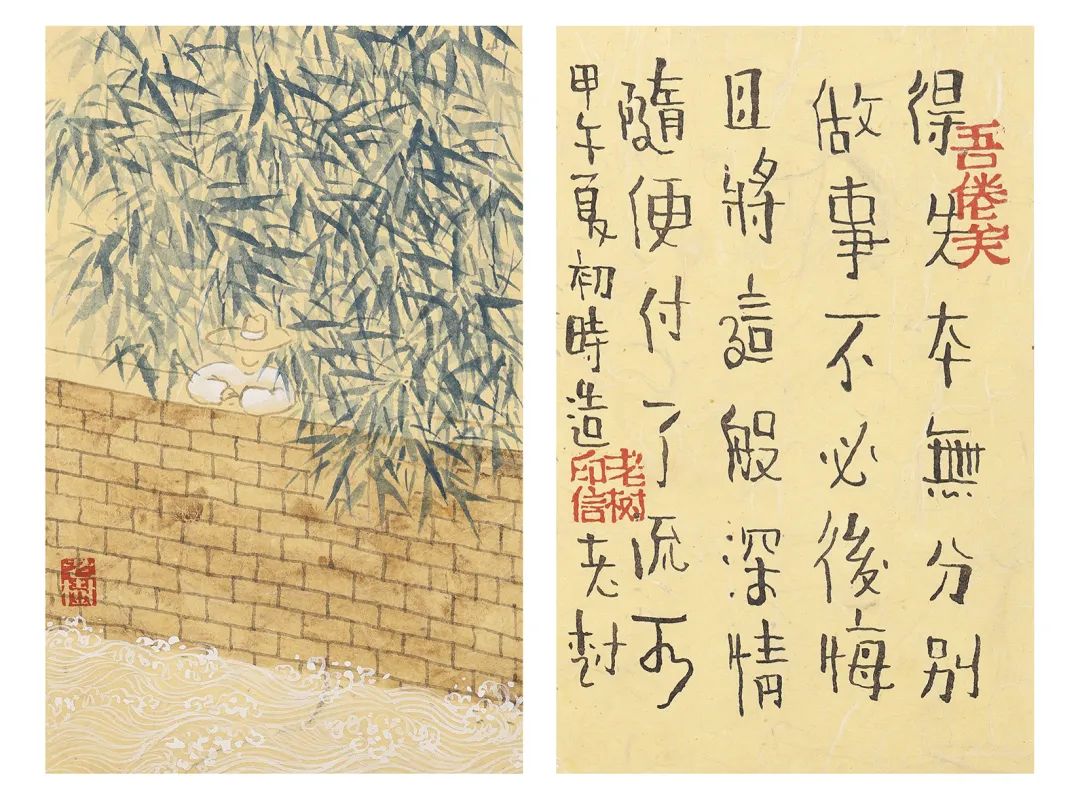 得失本無分别
做事不必後悔
且將這般深情
隨便付了流水
甲午夏初時造 老树
吾倦矣
老树印信
老樹